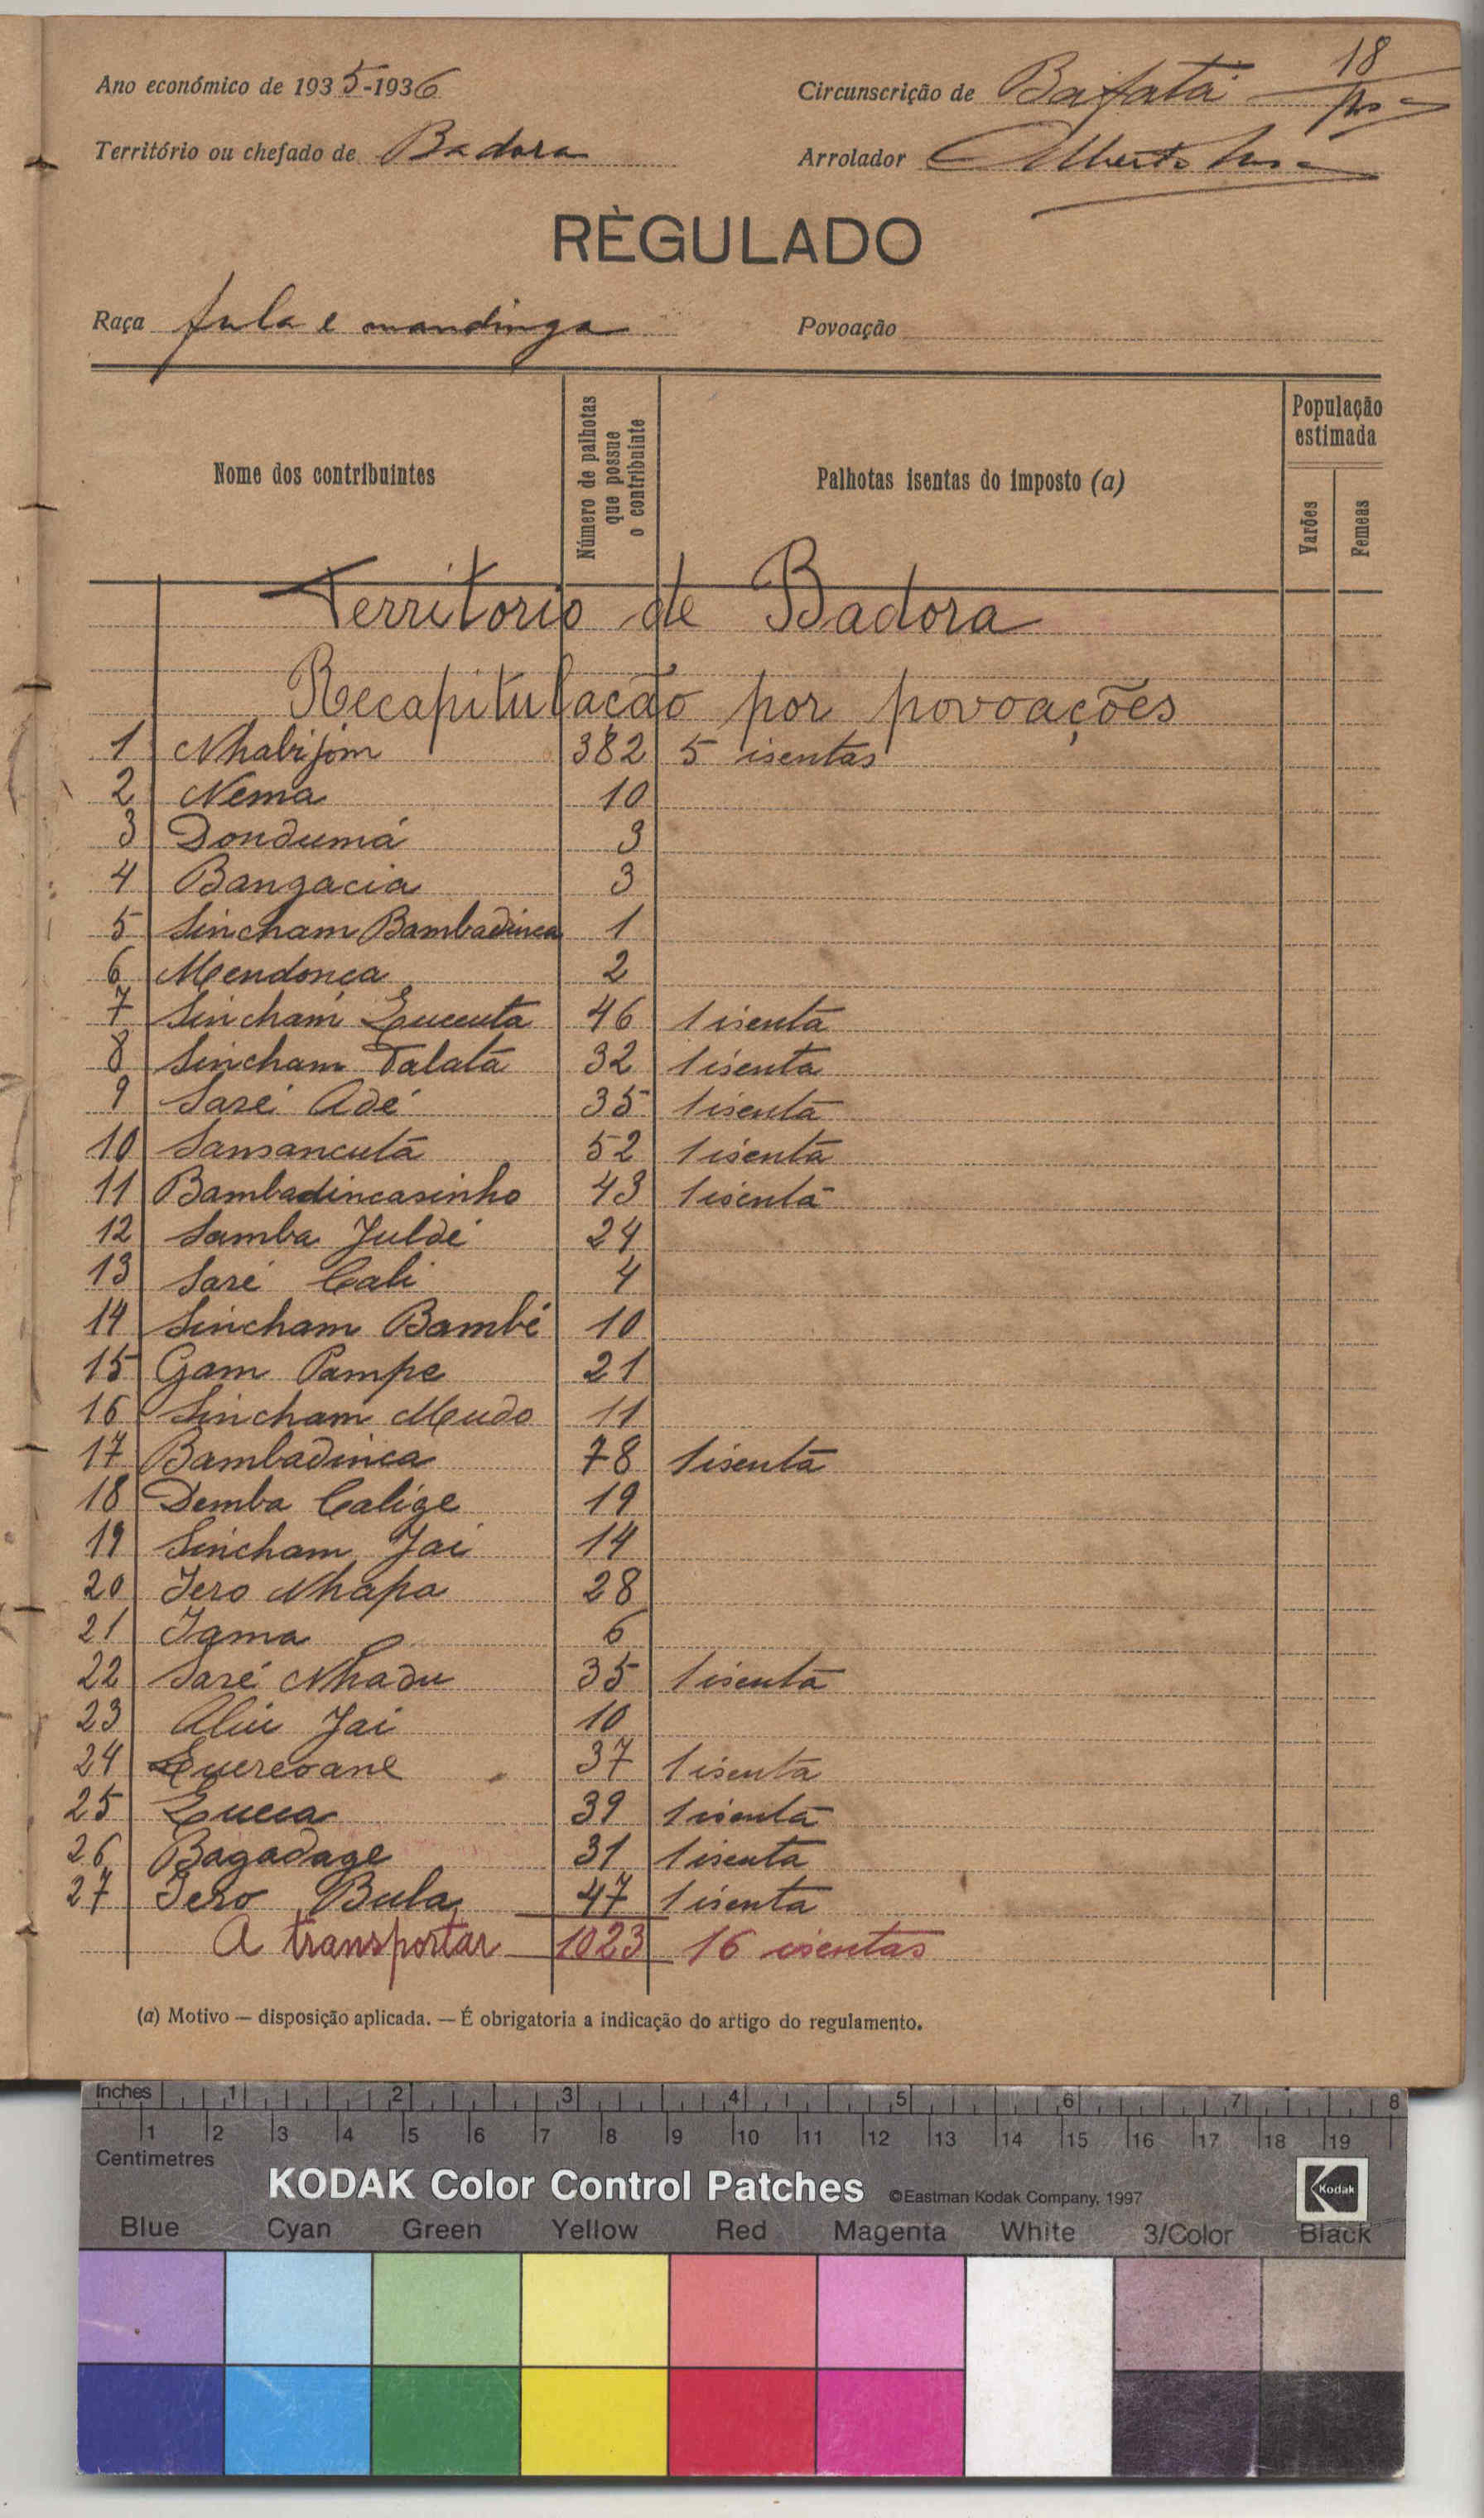 Ano económico de 1935-1936
Circunscrição de Bafatá 18
Território ou chefado de Badora
Arrolador Alberto
RÈGULADO
Raça fula e mandinga
Povoação
Nome dos contribuintes
Número de palhotas que possue o contribuinte
Palhotas isentas do imposto (a)
População estimada
Varões
Femeas
Territorio de Badora
Recapitulação por povoações
1 Nhabijom 382 5 isentas
2 Nema 10
3 Dondumá 3
4 Bangacia 3
5 Sincham Bambadinca 1
6 Mendonça 2
7 Sincham Lucuta 46 1 isenta
8 Sincham Talata 32 1 isenta
9 Saré Adé 35 1 isenta
10 Sansancutá 52 1 isenta
11 Bambadincasinho 43 1 isenta
12 Samba Juldé 24
13 Saré Cali 4
14 Sincham Bambé 10
15 Gam Pampe 21
16 Sincham Mudo 11
17 Bambadinca 78 1 isenta
18 Demba Calige 19
19 Sincham Jai 14
20 Iero Nhapa 28
21 Iama 6
22 Saré Nhadu 35 1 isenta
23 Aliu Jai 10
24 Queresane 37 1 isenta
25 39 1 isenta
26 Bagadage 31 1 isenta
27 Iero Bula 47 1 isenta
A transportar 1023 16 isentas
(a) Motivo — disposição aplicada. — É obrigatoria a indicação do artigo do regulamento.
Inches 1 2 3 4 5 6 7 8
1 2 3 4 5 6 7 8 9 10 11 12 13 14 15 16 17 18 19
Centimetres
KODAK Color Control Patches ©Eastman Kodak Company, 1997 Kodak
Blue Cyan Green Yellow Red Magenta White 3/Color Black